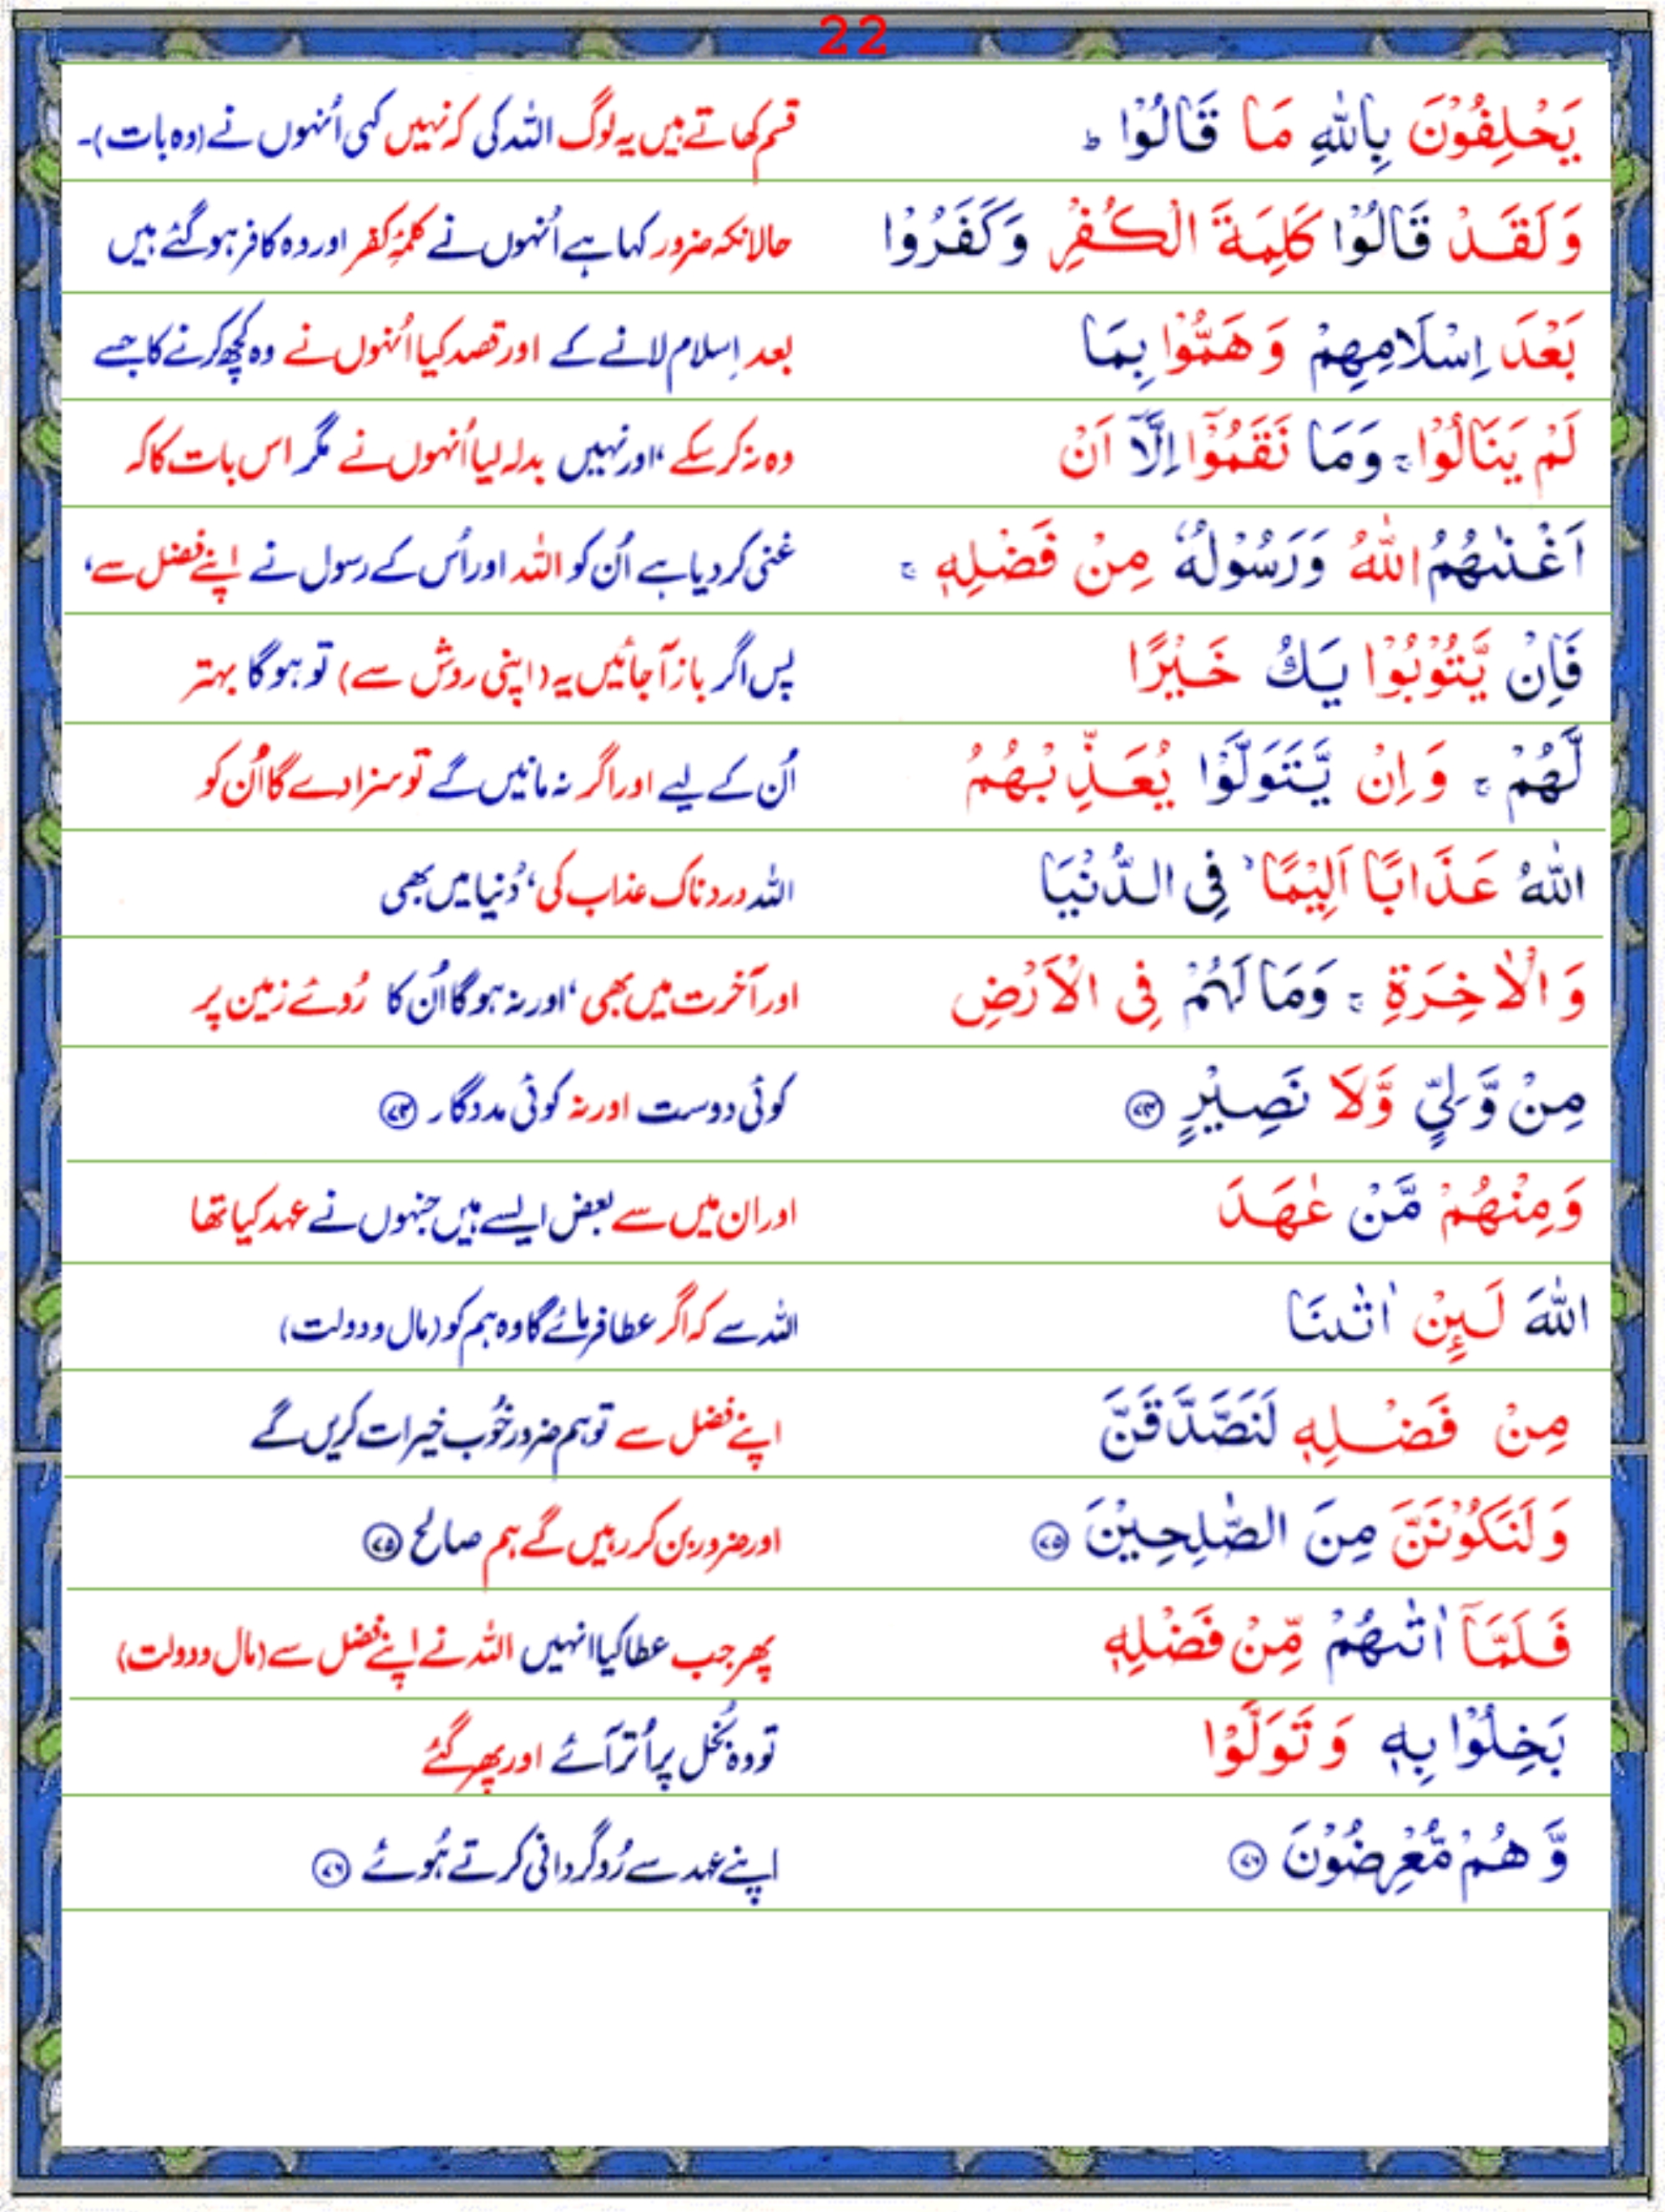 22
يَحْلِفُوْنَ بِاللّٰهِ مَا قَالُوْا ؕ قسم کھاتے ہیں یہ لوگ اللہ کی کہ نہیں کہی اُنہوں نے (وہ بات)۔
وَلَقَدْ قَالُوْا كَلِمَةَ الْكُفْرِ وَكَفَرُوْا حالانکہ ضرور کہا ہے اُنہوں نے کلمۂ کفر اور وہ کافر ہوگئے ہیں
بَعْدَ اِسْلَامِهِمْ وَهَمُّوْا بِمَا بعد اِسلام لانے کے اور قصد کیا اُنہوں نے وہ کچھ کرنے کا جسے
لَمْ يَنَالُوْا ۚ وَمَا نَقَمُوْۤا اِلَّاۤ اَنْ وہ نہ کر سکے ، اور نہیں بدلہ لیا اُنہوں نے مگر اس بات کا کہ
اَغْنٰىهُمُ اللّٰهُ وَرَسُوْلُهٗ مِنْ فَضْلِهٖ ۚ غنی کر دیا ہے اُن کو اللہ اور اُس کے رسول نے اپنے فضل سے،
فَاِنْ يَّتُوْبُوْا يَكُ خَيْرًا پس اگر باز آ جائیں یہ (اپنی روش سے) تو ہوگا بہتر
لَّهُمْ ۚ وَاِنْ يَّتَوَلَّوْا يُعَذِّبْهُمُ اُن کے لیے اور اگر نہ مانیں گے تو سزا دے گا اُن کو
اللّٰهُ عَذَابًا اَلِيْمًا ۙ فِى الدُّنْيَا اللہ دردناک عذاب کی، دُنیا میں بھی
وَالْاٰخِرَةِ ۚ وَمَا لَهُمْ فِى الْاَرْضِ اور آخرت میں بھی، اور نہ ہوگا اُن کا رُوئے زمین پر
مِنْ وَّلِيٍّ وَّلَا نَصِيْرٍ ۷۴ کوئی دوست اور نہ کوئی مددگار۔ ۷۴
وَمِنْهُمْ مَّنْ عٰهَدَ اور ان میں سے بعض ایسے ہیں جنہوں نے عہد کیا تھا
اللّٰهَ لَـئِنْ اٰتٰٮنَا اللہ سے کہ اگر عطا فرمائے گا وہ ہم کو (مال و دولت)
مِنْ فَضْلِهٖ لَنَصَّدَّقَنَّ اپنے فضل سے تو ہم ضرور خُوب خیرات کریں گے
وَلَنَكُوْنَنَّ مِنَ الصّٰلِحِيْنَ ۷۵ اور ضرور بن کر رہیں گے ہم صالح ۷۵
فَلَمَّاۤ اٰتٰٮهُمْ مِّنْ فَضْلِهٖ پھر جب عطا کیا انہیں اللہ نے اپنے فضل سے (مال و دولت)
بَخِلُوْا بِهٖ وَتَوَلَّوْا تو وہ بُخل پر اُتر آئے اور پھر گئے
وَّهُمْ مُّعْرِضُوْنَ ۷۶ اپنے عہد سے رُوگردانی کرتے ہُوئے ۷۶